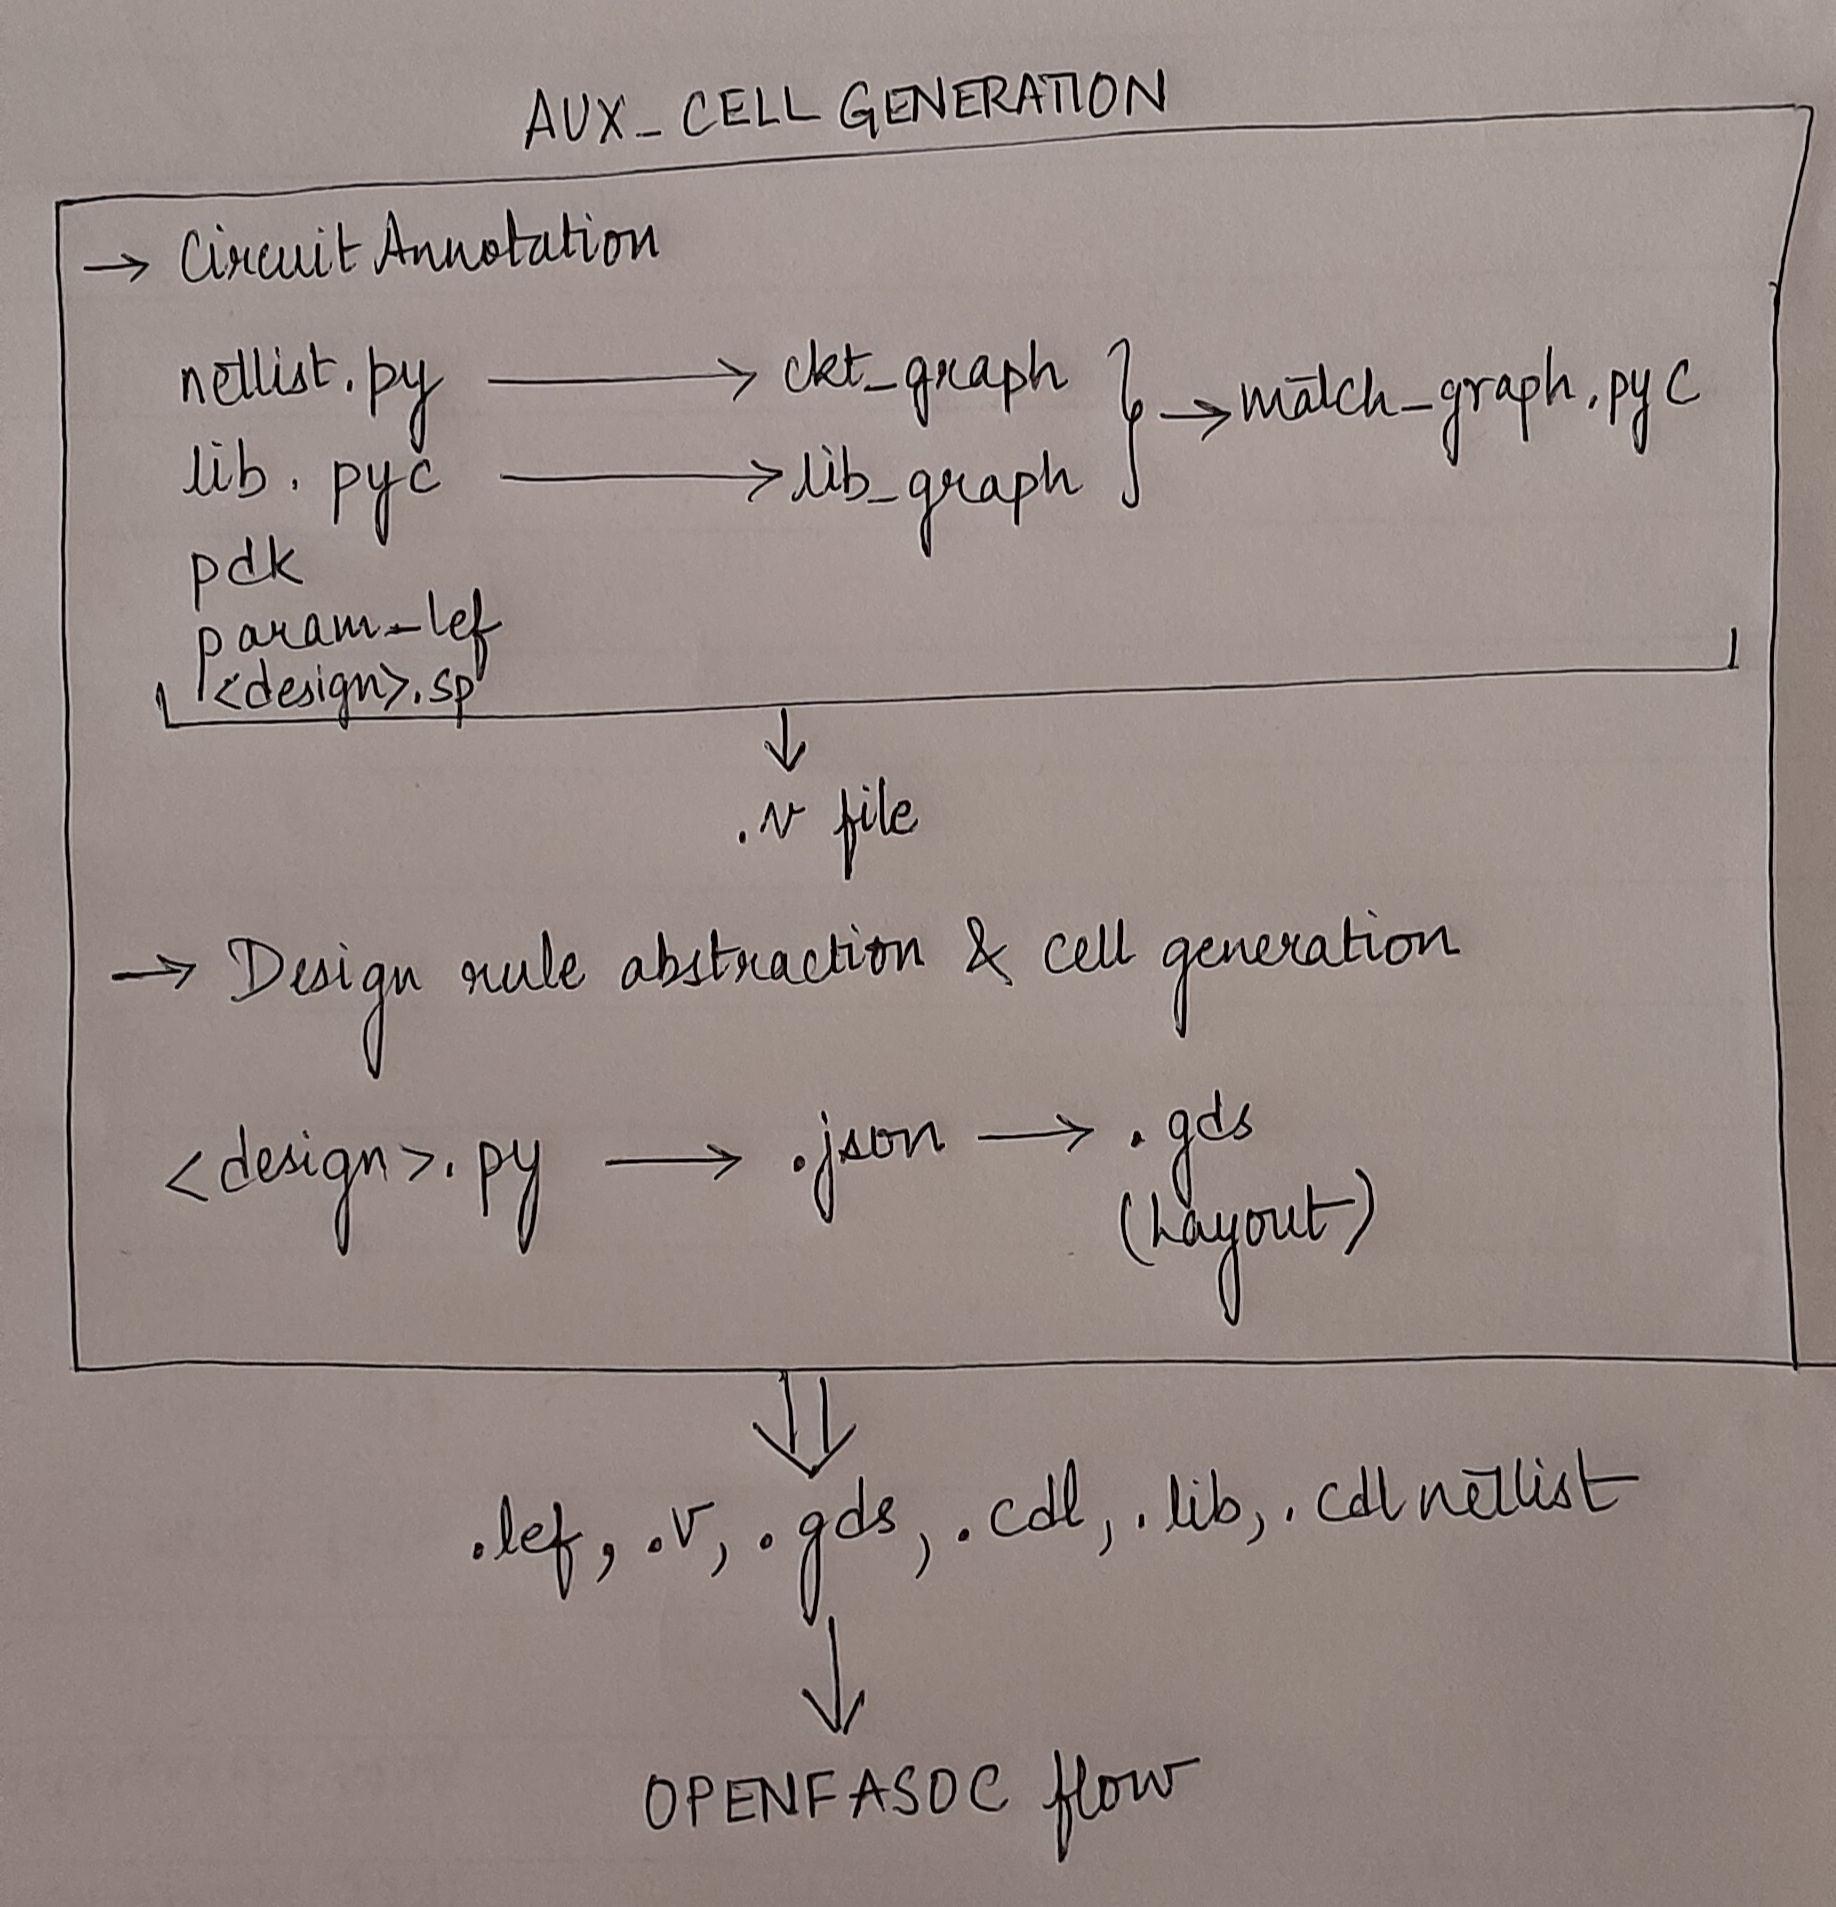 AUX_CELL GENERATION
→ Circuit Annotation
netlist.py → ckt_graph } → match_graph.pyc
lib.pyc → lib_graph
pdk
param_lef
<design>.sp
↓
.v file
→ Design rule abstraction & cell generation
<design>.py → .json → .gds
(Layout)
⇓
.lef, .v, .gds, .cdl, .lib, .cdl netlist
↓
OPENFASOC flow